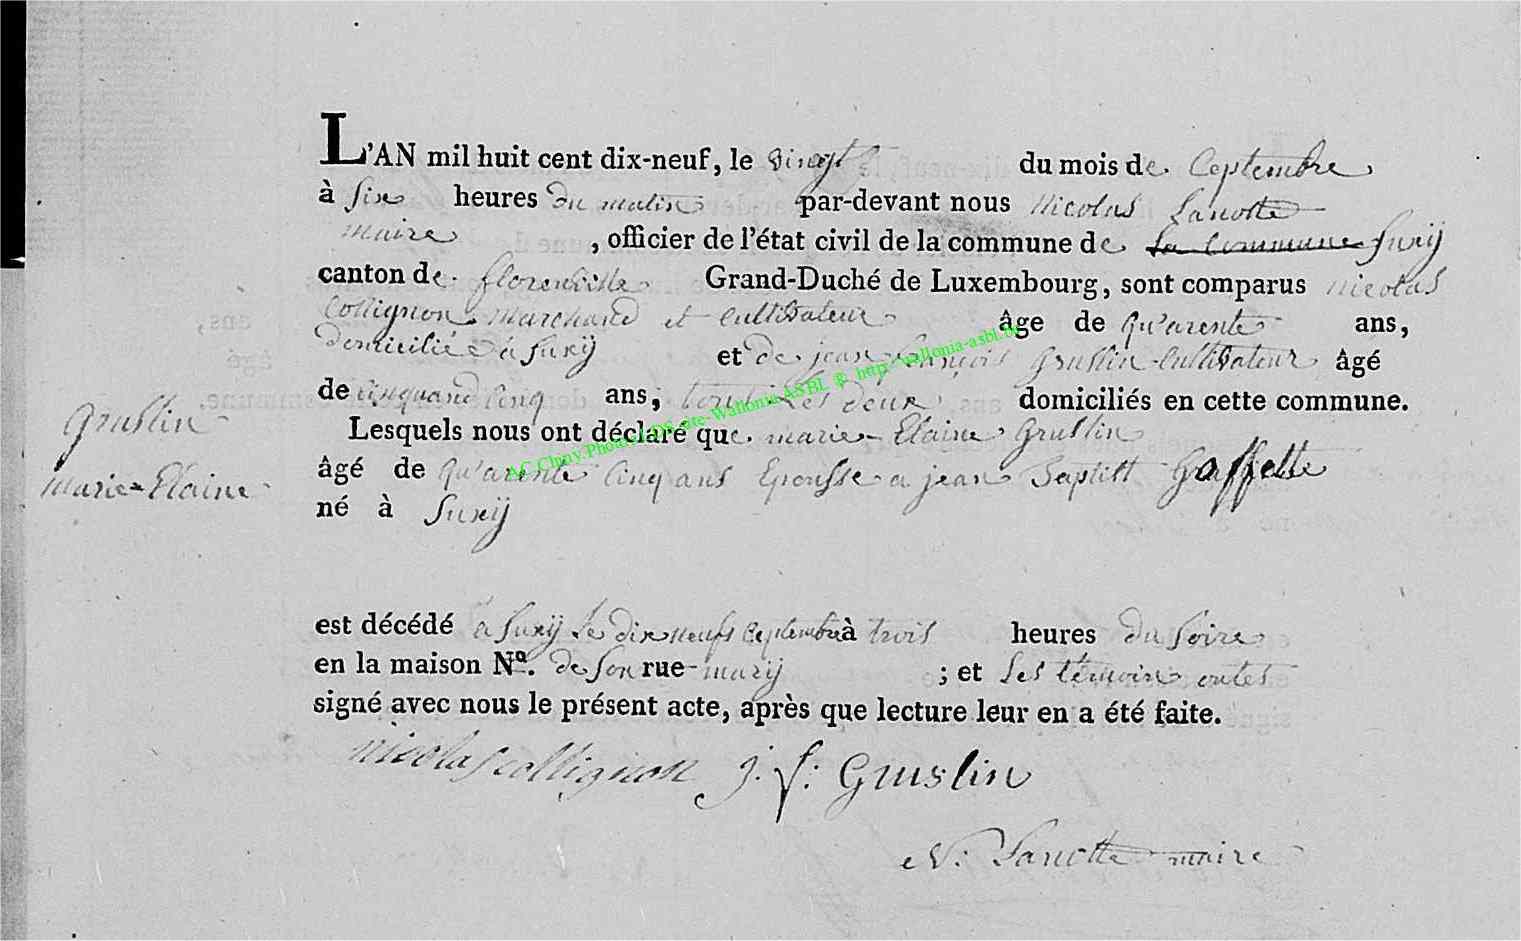 L'AN mil huit cent dix-neuf, le vingt du mois de Ceptembre
à Six heures du matin par-devant nous Nicolas Lanotte
maire , officier de l'état civil de la commune de La Commune Suxÿ
canton de florenville Grand-Duché de Luxembourg, sont comparus nicolas
Collignon marchand et Cultivateur âge de qu'arente ans,
domicilié à Suxÿ et de jean françois Gruslin Cultivateur âgé
de Cinquand Cinq ans, Les deux domiciliés en cette commune.
Lesquels nous ont déclaré que marie-Elaine Gruslin
âgé de qu'arente Cinq ans Epousse a jean Baptist Goffette
né à Suxÿ
Gruslin
marie-Elaine
est décédé a Suxÿ Le dix neufs Ceptembre à trois heures du Soire
en la maison Nº. de Son rue marÿ ; et Les témoins ontes
signé avec nous le présent acte, après que lecture leur en a été faite.
nicolas collignon j. f: Gruslin
N: Lanotte maire
AC Chiny Photos LDS site-Wallonia ASBL @ http://wallonia-asbl.be